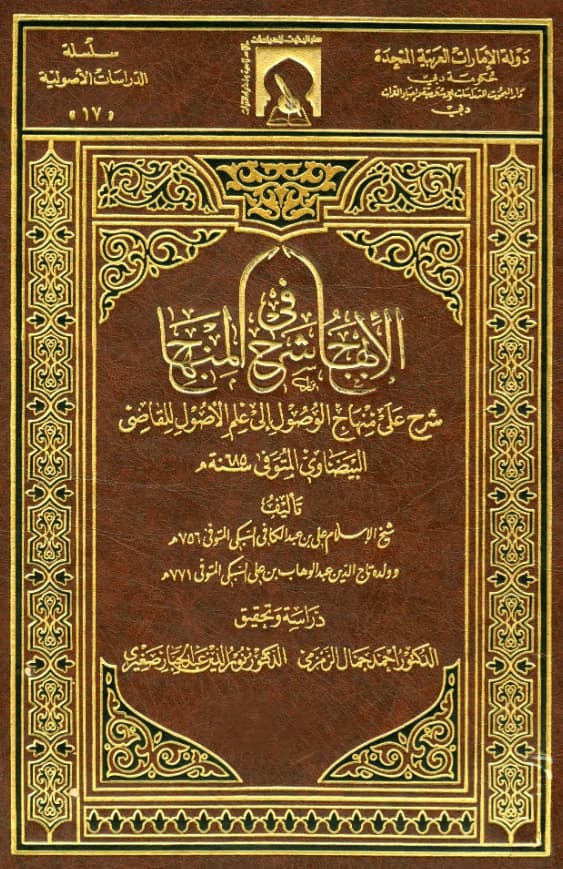 دولة الإمارات العربية المتحدة
حكومة دبي
دار البحوث للدراسات الإسلامية وإحياء التراث
دبي
سلسلة
الدراسات الأصولية
«١٧»
الإبهاج في شرح المنهاج
شرح على منهاج الوصول إلى علم الأصول للقاضي
البيضاوي المتوفى سنة ٦٨٥هـ
تأليف
شيخ الإسلام علي بن عبد الكافي السبكي المتوفى ٧٥٦هـ
وولده تاج الدين عبد الوهاب بن علي السبكي المتوفى ٧٧١هـ
دراسة وتحقيق
الدكتور أحمد جمال الزمزمي الدكتور نور الدين عبد الجبار صغيري